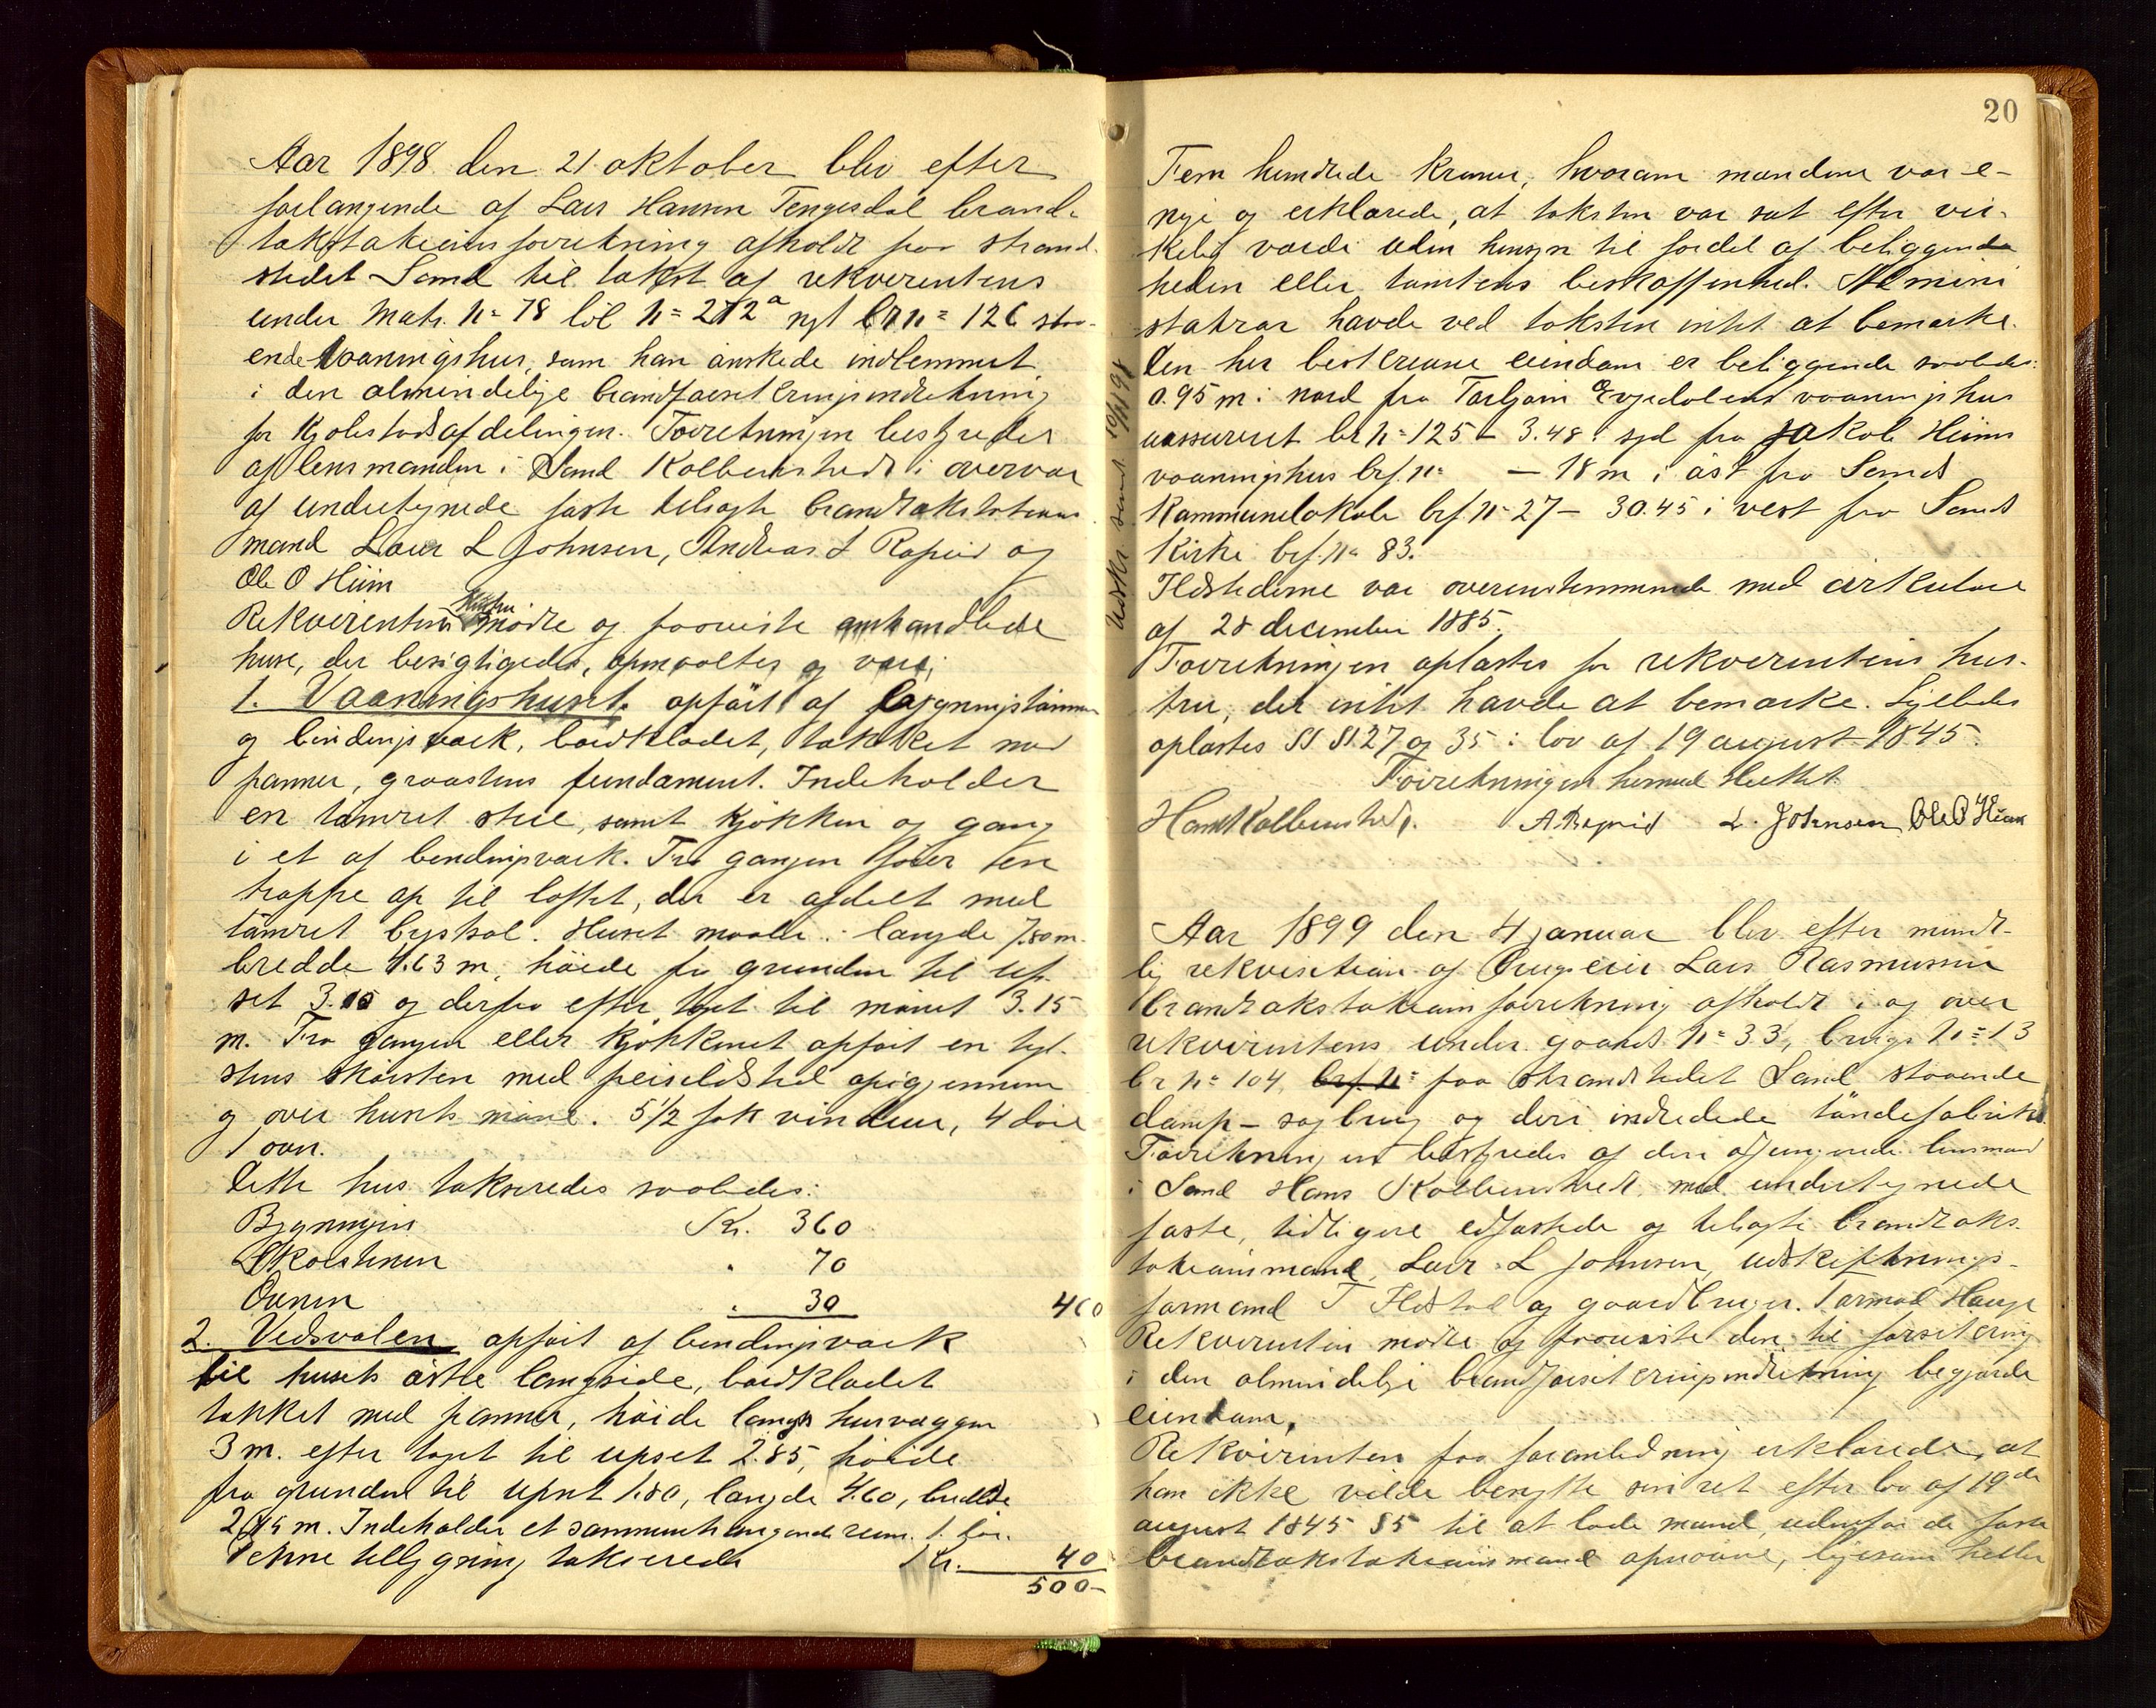 Aar 1898 den 21 oktober blev efter
forlangende af Lars Hansen Tengesdal brand-
takstationsforretning afholdt paa strand-
stedet Sand til takst af rekvirentens
under Matr. No 78 löb No 272a nyt br No 126 staa-
ende Vaaningshus, som han önskede indlemmet
i den almindelige brandforsikringsindretning
for Kjøbstadsafdelingen. Forretningen bestyredes
af lensmanden i Sand Kolbenstvedt i overvær
af undertegnede faste tilsagte brandtakstations
mænd Laur L Johnsen, Andreas L Ropeid og
Ole O Hiim
Rekvirentens hustru mødte og paaviste
huse, der besigtigedes, opmaaltes og var:
1. Vaaningshuset opfört af bygningstømmer
og bindingsværk, bordklædet, tækket med
panner, graastens fundament. Indeholder
en tömret stue, samt kjøkken og gang
i et af bindingsværk. Fra gangen förer en
trappe op til loftet, der er afdelt med
tömret bordskal. Huset maaler i længde 7.80 m.
bredde 4.63 m, höide fra grunden til up-
set 3.15 og derfra efter taget til mönet 3.15
m. Fra gangen eller kjøkkenet opfört en tegl-
stens skorsten med peisildsted opigjennem
og over husets möne. 5 1/2 fak vinduer, 4 döre
1 ovn.
Dette hus takseredes saaledes:
Bygningen Kr. 360
Skorstenen " 70
Ovnen " 30 460
2. Vedsvalen opfört af bindingsværk
til husets östre langside, bordklædet
tækket med panner, höide langs husvæggen
3 m. efter taget til upset 2.85, höide
fra grunden til upset 1.80, længde 4.60, bredde
2.45 m. Indeholder et sammenhængende rum. 1 dör.
Denne tilbygning takseredes Kr. 40
500-
20
Udskr. sendt 10/11 1898
Fem hundrede kroner, hvorom mændene var e-
nige og erklærede, at taksten var sat efter vir-
kelig værdi uden hensyn til fordel af beliggenda
heden eller tomtens beskaffenhed. Admini
strator havde ved taksten intet at bemærke.
Den her beskrevne eiendom er beliggende saaledes:
0.95 m i nord fra Torbjørn Evjedalens vaaningshus
uassureret br No 125 - 3.48 i syd fra Jakob Hiims
vaaningshus brf. No - 18 m i öst fra Sands
Kommunelokale brf. No 27 - 30.45 i vest fra Sands
Kirke brf. No 83.
Ildstederne var overensstemmende med cirkulære
af 28 december 1885.
Forretningen oplæstes for rekvirentens hus-
tru, der intet havde at bemærke. Ligeledes
oplæstes §§ 27 og 35 i lov af 19 august 1845.
Forretningen hermed sluttet.
Hans Kolbenstvedt. A. Ropeid L. Johnsen Ole O Hiim
Aar 1899 den 4 januar blev efter mundt-
lig rekvisition af Brugseier Lars Rasmussen
brandtakstationsforretning afholdt i og over
rekvirentens under gaards No 33, brugs No 13
br No 104, brf. No paa strandstedet Sand staaende
damp-sagbrug og deri indredede töndefabrik.
Forretningen bestyredes af den adjungerede lensmand
i Sand Hans Kolbenstvedt med undertegnede
faste, tidligere edfæstede og tilsagte brandtaks-
tationsmænd, Laur L Johnsen, udskiftnings-
formand T Ildstad og gaardbruger Tormod Hauge
Rekvirenten mødte og paaviste den til forsikring
i den almindelige brandforsikringsindretning begjærede
eiendom.
Rekvirenten paa foranledning erklærede, at
han ikke vilde benytte sin ret efter lov af 19de
august 1845 §5 til at lade mænd, udenfor de faste
brandtakstationsmænd opnævne, ligesom heller